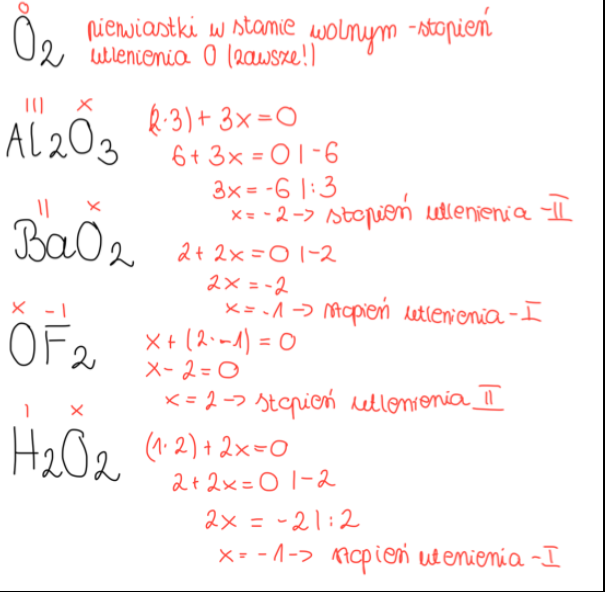 0
O2 pierwiastki w stanie wolnym - stopień
utlenienia 0 (zawsze!)
III x
Al2O3 (2·3) + 3x = 0
6 + 3x = 0 | -6
3x = -6 | :3
x = -2 -> stopień utlenienia -II
II x
BaO2 2 + 2x = 0 | -2
2x = -2
x = -1 -> stopień utlenienia -I
x -1
OF2 x + (2·-1) = 0
x - 2 = 0
x = 2 -> stopień utlenienia II
1 x
H2O2 (1·2) + 2x = 0
2 + 2x = 0 | -2
2x = -2 | :2
x = -1 -> stopień utenienia -I